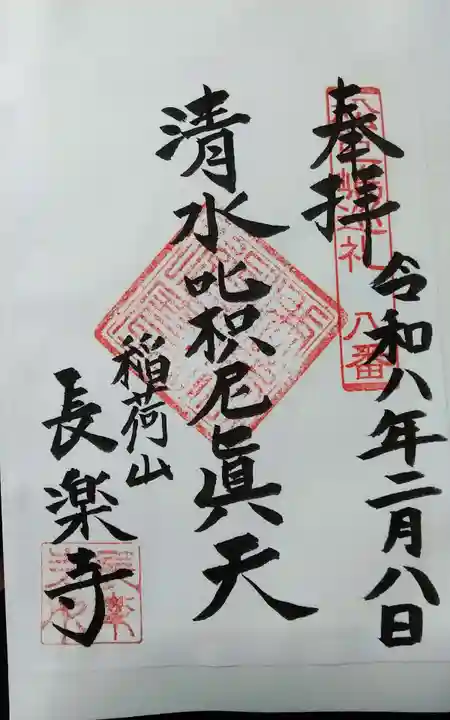 奉拝
令和八年二月八日
清水叱枳尼眞天
稲荷山
長楽寺
八番